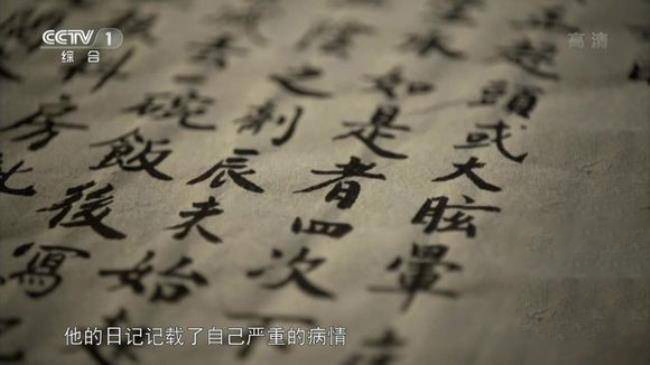 CCTV 1
综合
高清
起頭或大眩暈
水如是者四次下
陰之剤辰未始
一碗飯後寫
料房
他的日记记载了自己严重的病情